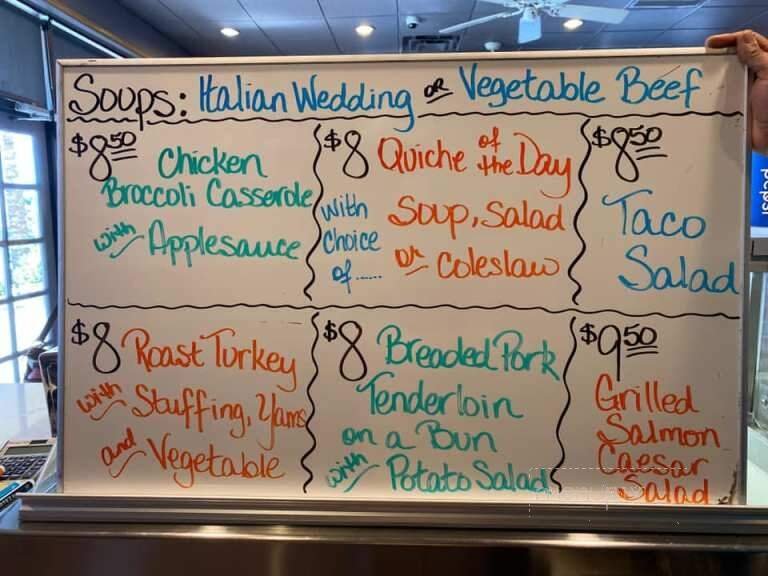 Soups: Italian Wedding or Vegetable Beef
$8.50
Chicken
Broccoli Casserole
with Applesauce
$8 Quiche of the Day
with choice of......
Soup, Salad
or Coleslaw
$8.50
Taco
Salad
$8 Roast Turkey
with Stuffing, Yams
and Vegetable
$8 Breaded Pork
Tenderloin
on a Bun
with Potato Salad
$9.50
Grilled
Salmon
Caesar
Salad
pepsi